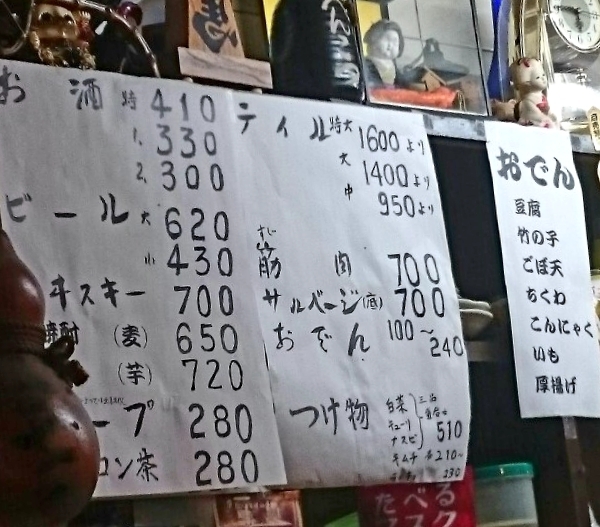 お酒 特 410
1. 330
2. 300
ビール 大 620
小 430
ヰスキー 700
焼酎 (麦) 650
(芋) 720
ープ 280
ロン茶 280
テイル 特大 1600より
大 1400より
中 950より
筋肉 700
サルベージ(底) 700
おでん 100〜240
つけ物 白菜 三品
キューリ 盛合せ
ナスビ 510
キムチ 210〜
230
おでん
豆腐
竹の子
ごぼ天
ちくわ
こんにゃく
いも
厚揚げ